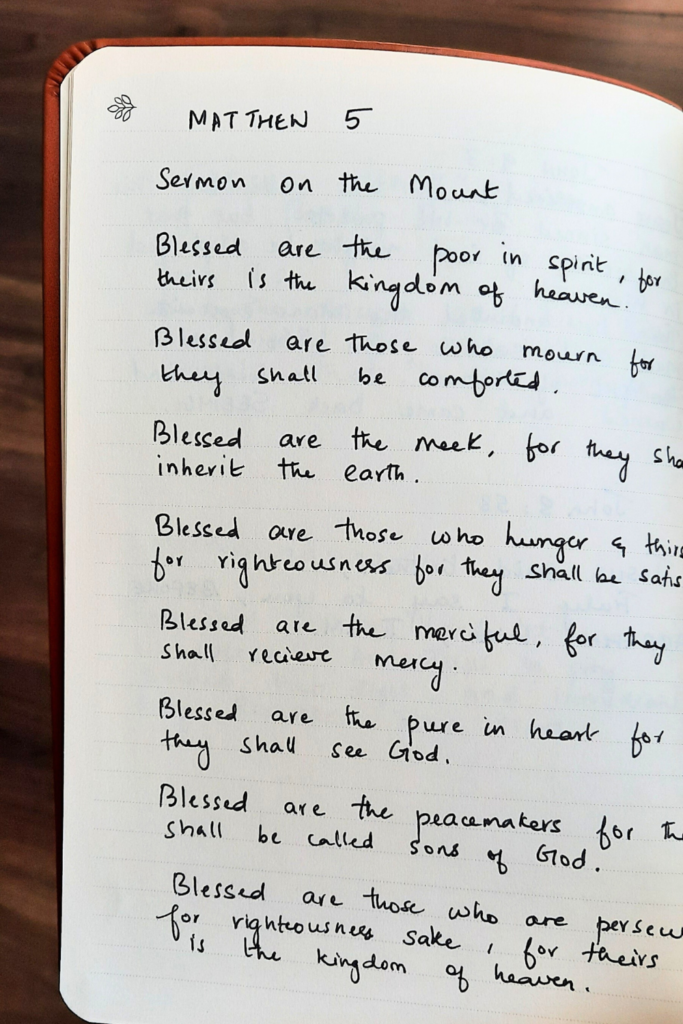 MATTHEW 5
Sermon on the Mount
Blessed are the poor in spirit, for
theirs is the kingdom of heaven.
Blessed are those who mourn for
they shall be comforted.
Blessed are the meek, for they sha
inherit the earth.
Blessed are those who hunger & thirs
for righteousness for they shall be satis
Blessed are the merciful, for they
shall recieve mercy.
Blessed are the pure in heart for
they shall see God.
Blessed are the peacemakers for th
shall be called sons of God.
Blessed are those who are persecu
for righteousness sake, for theirs
is the kingdom of heaven.